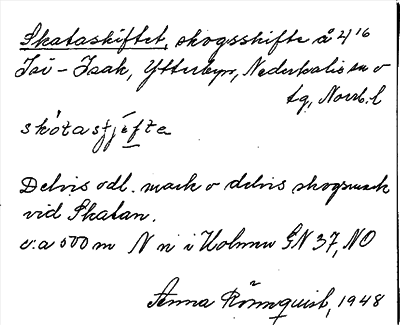 Skataskiftet, skogsskifte å 2 4/16
Isi-Isak, Ytterbyn, Nederkalix sn o
tg, Norrb. l
skótastjéfte
Delvis odl. mark o delvis skogsmark
vid Skatan.
c:a 500 m N n i Holmen GN 37, NO
Anna Rönnquist, 1948